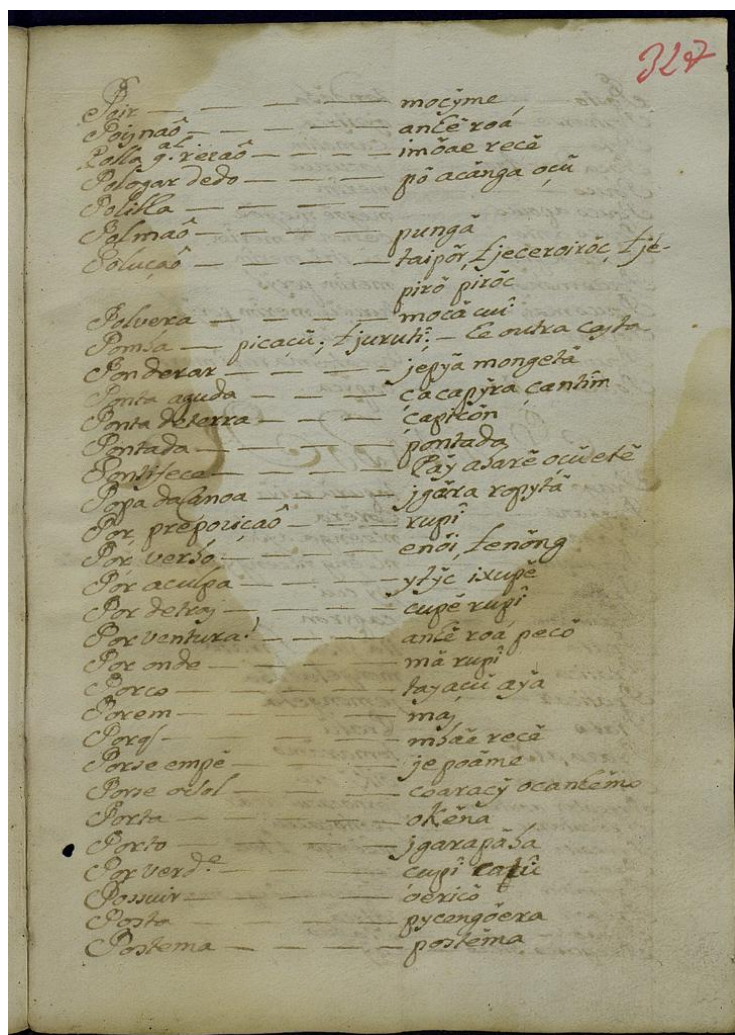 327
Poir — — — — moçӱme
Poijnaõ — — — — ancê roá
Polla q.al rezaõ — — — — imõae recê
Pologar dedo — — — — põ acánga oçũ
Polilla — — — —
Polmaõ — — — — pungã
Poluçaõ — — — — taipõr, t jeceroirõc, t je-
pirõ pirõc
Polvera — — — — mocã cuî
Pomba — picaçũ; t jurutî; — he outra casta
Ponderar — — — — jepyã mongetã
Ponta aguda — — — — çacapӱra, çantîm
Ponta de terra — — — — çapicõn
Pontada — — — — pontada
Pontifece — — — — Pãy abarê oçũ etê
Popa da Canoa — — — — jgãra ropytã
Por, prepoziçaõ — — — — rupî
Por verbo — — — — enõi, t enõng
Por a culpa — — — — ytӱc ixupê
Por detraz — — — — cupê rupî
Por ventura! — — — — ancê roá, pecõ
Por onde — — — — mã rupî
Porco — — — — tayaçũ ayã
Porem — — — — maj
Porq/ — — — — mbãe recê
Porse empê — — — — je poãme
Porse o Sol — — — — coaracӱ ocanhêmo
Porta — — — — okêna
Porto — — — — jgarapãba
Por verd.e — — — — cupî catũ
Possuir — — — — oericõ
Posta — — — — pycengõera
Postema — — — — postêma